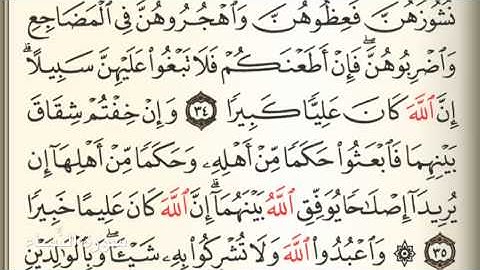 نُشُوزَهُنَّ فَعِظُوهُنَّ وَٱهْجُرُوهُنَّ فِي ٱلْمَضَاجِعِ
وَٱضْرِبُوهُنَّۖ فَإِنْ أَطَعْنَكُمْ فَلَا تَبْغُوا۟ عَلَيْهِنَّ سَبِيلًاۗ
إِنَّ ٱللَّهَ كَانَ عَلِيًّا كَبِيرًا ٣٤ وَإِنْ خِفْتُمْ شِقَاقَ
بَيْنِهِمَا فَٱبْعَثُوا۟ حَكَمًا مِّنْ أَهْلِهِۦ وَحَكَمًا مِّنْ أَهْلِهَآ إِن
يُرِيدَآ إِصْلَـٰحًا يُوَفِّقِ ٱللَّهُ بَيْنَهُمَآۗ إِنَّ ٱللَّهَ كَانَ عَلِيمًا خَبِيرًا
٣٥ ۞ وَٱعْبُدُوا۟ ٱللَّهَ وَلَا تُشْرِكُوا۟ بِهِۦ شَيْـًٔاۖ وَبِٱلْوَٰلِدَيْنِ